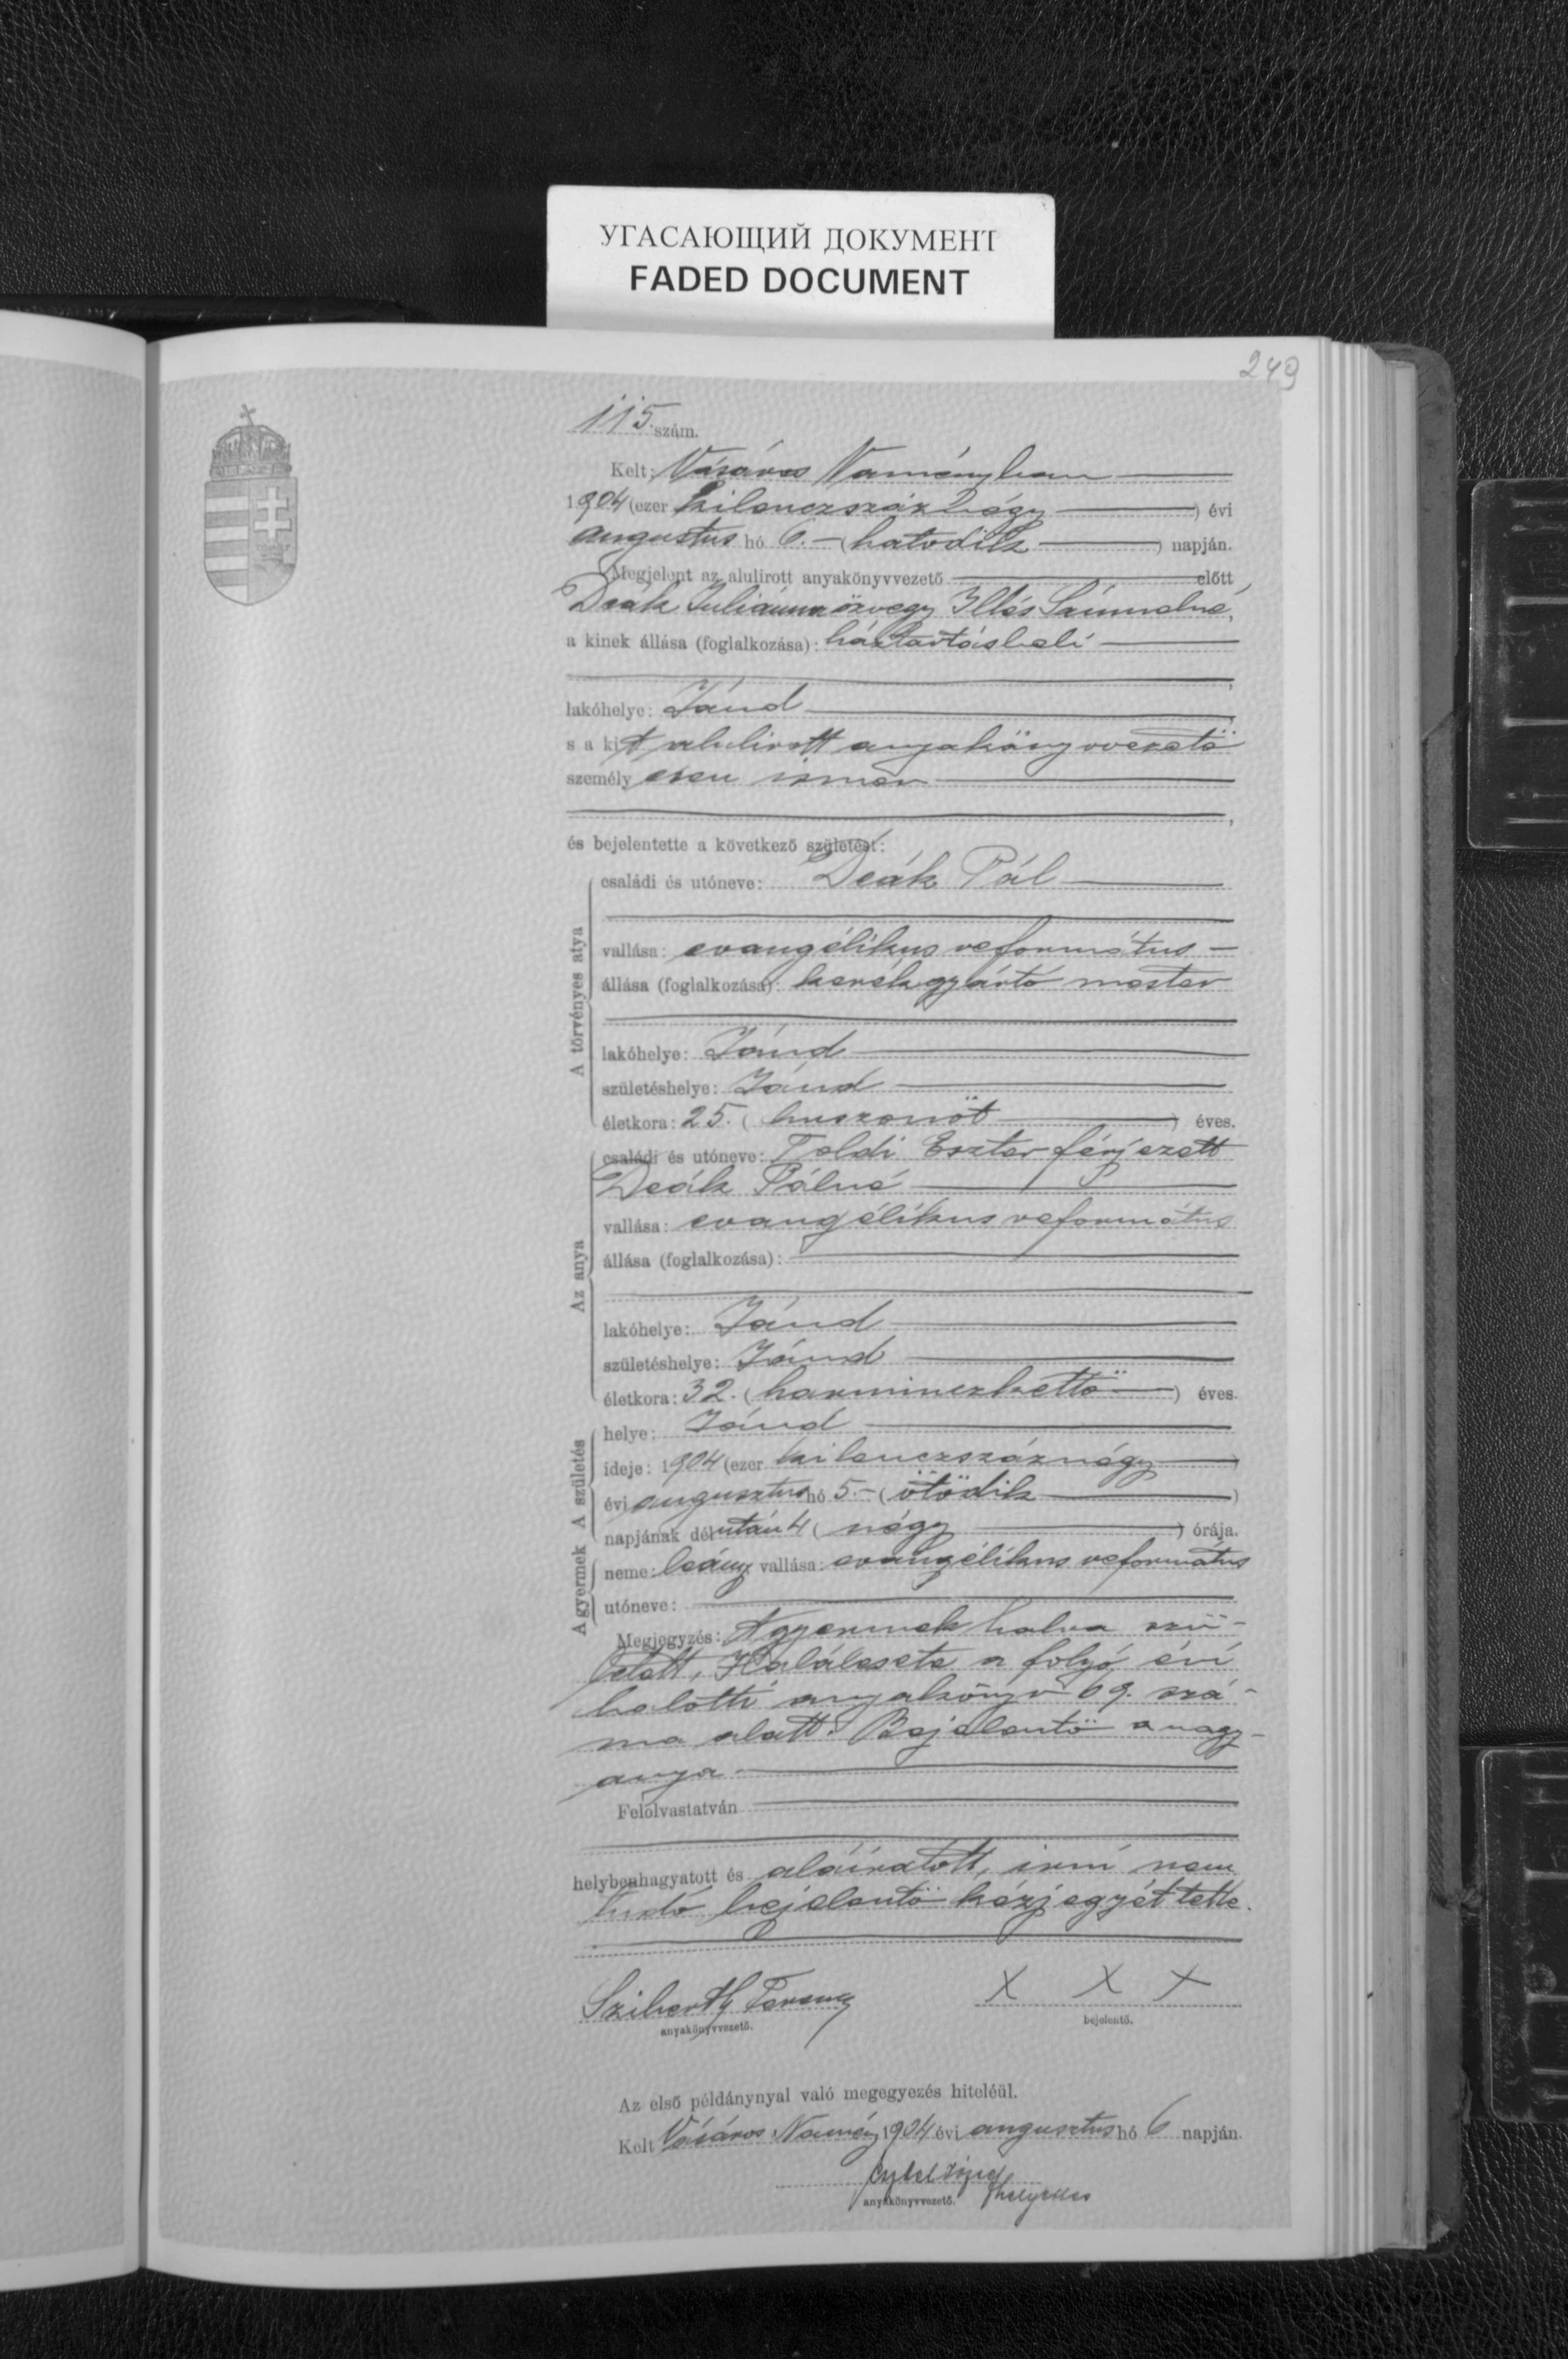 УГАСАЮЩИЙ ДОКУМЕНТ
FADED DOCUMENT
249
115. szám.
Kelt: Vásáros Naményban
1904 (ezer kilenczszáznégy) évi
augustus hó 6. (hatodik) napján.
Megjelent az alulirott anyakönyvvezető előtt
Deák Juliánna özvegy Illés Sámuelné,
a kinek állása (foglalkozása): háztartásbeli
lakóhelye: Jánd
s a kit alulirott anyakönyvvezető
személyesen ismer
és bejelentette a következő születést:
A törvényes atya
családi és utóneve: Deák Pál
vallása: evangélikus református
állása (foglalkozása): kerékgyártó mester
lakóhelye: Jánd
születéshelye: Jánd
életkora: 25. (huszonöt) éves.
Az anya
családi és utóneve: Toldi Eszter férjezett
Deák Pálné
vallása: evangélikus református
állása (foglalkozása):
lakóhelye: Jánd
születéshelye: Jánd
életkora: 32. (harminczkettő) éves.
A születés
helye: Jánd
ideje: 1904 (ezer kilenczszáznégy)
évi augusztus hó 5. (ötödik)
napjának délután 4 (négy) órája.
A gyermek
neme: leány vallása: evangélikus református
utóneve:
Megjegyzés: A gyermek halva szü-
letett, Halálesete a folyó évi
halotti anyakönyv 69. szá-
ma alatt. Bejelentő a nagy-
anya
Felolvastatván
helybenhagyatott és aláiratott, irni nem
tudó bejelentő kézjegyét tette.
Sziberth Ferencz X X X
anyakönyvvezető. bejelentő.
Az első példánynyal való megegyezés hiteléül.
Kelt Vásáros Namény 1904 évi augusztus hó 6 napján.
helyettes
anyakönyvvezető.